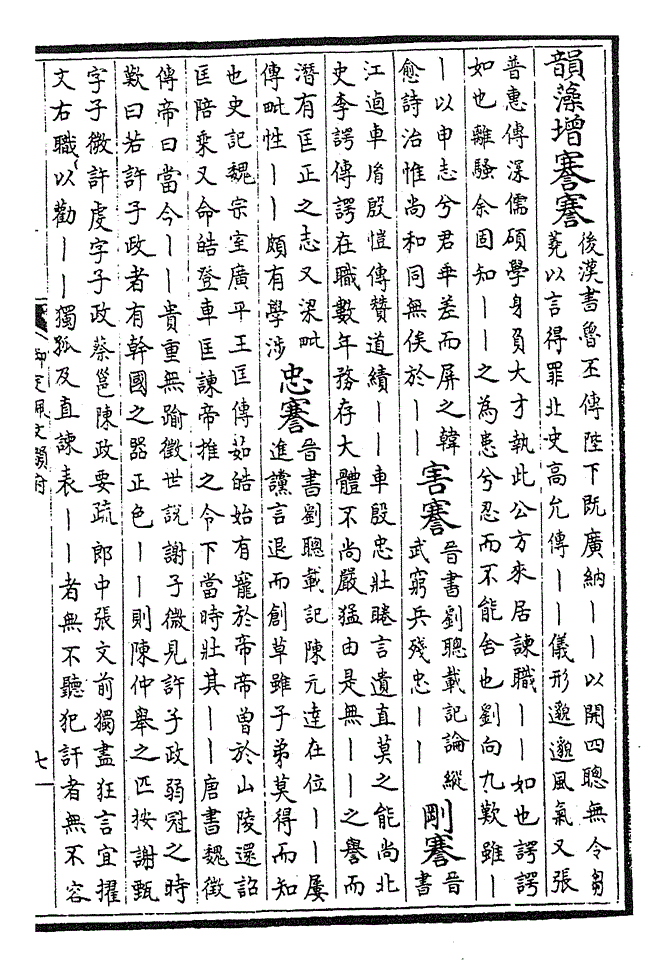 韻藻增謇謇後漢書魯丕傳陛下既廣納||以開四聰無令芻
蕘以言得罪北史高允傳||儀形邈邈風氣又張
普惠傳深儒碩學身負大才執此公方來居諫職||如也諤諤
如也離騷余固知||之為患兮忍而不能舍也劉向九歎雖|
|以申志兮君乖差而屏之韓
愈詩治惟尚和同無俟於||害謇晉書劉聰載記論縱
武窮兵殘忠||剛謇晉書
江逌車胤殷愷傳贊道績||車殷忠壯睠言遺直莫之能尚北
史李諤傳諤在職數年務存大體不尚嚴猛由是無||之譽而
潛有匡正之志又梁毗
傳毗性||頗有學涉忠謇晉書劉聰載記陳元達在位||屢
進讜言退而創草雖子弟莫得而知
也史記魏宗室廣平王匡傳茹皓始有寵於帝帝曾於山陵還詔
匡陪乘又命皓登車匡諫帝推之令下當時壯其||唐書魏徵
傳帝曰當今||貴重無踰徵世說謝子微見許子政弱冠之時
歎曰若許子政者有幹國之器正色||則陳仲舉之匹按謝甄
字子微許虔字子政蔡邕陳政要疏郎中張文前獨盡狂言宜擢
文右職以勸||獨孤及直諫表||者無不聽犯訐者無不容
御定佩文韻府
七